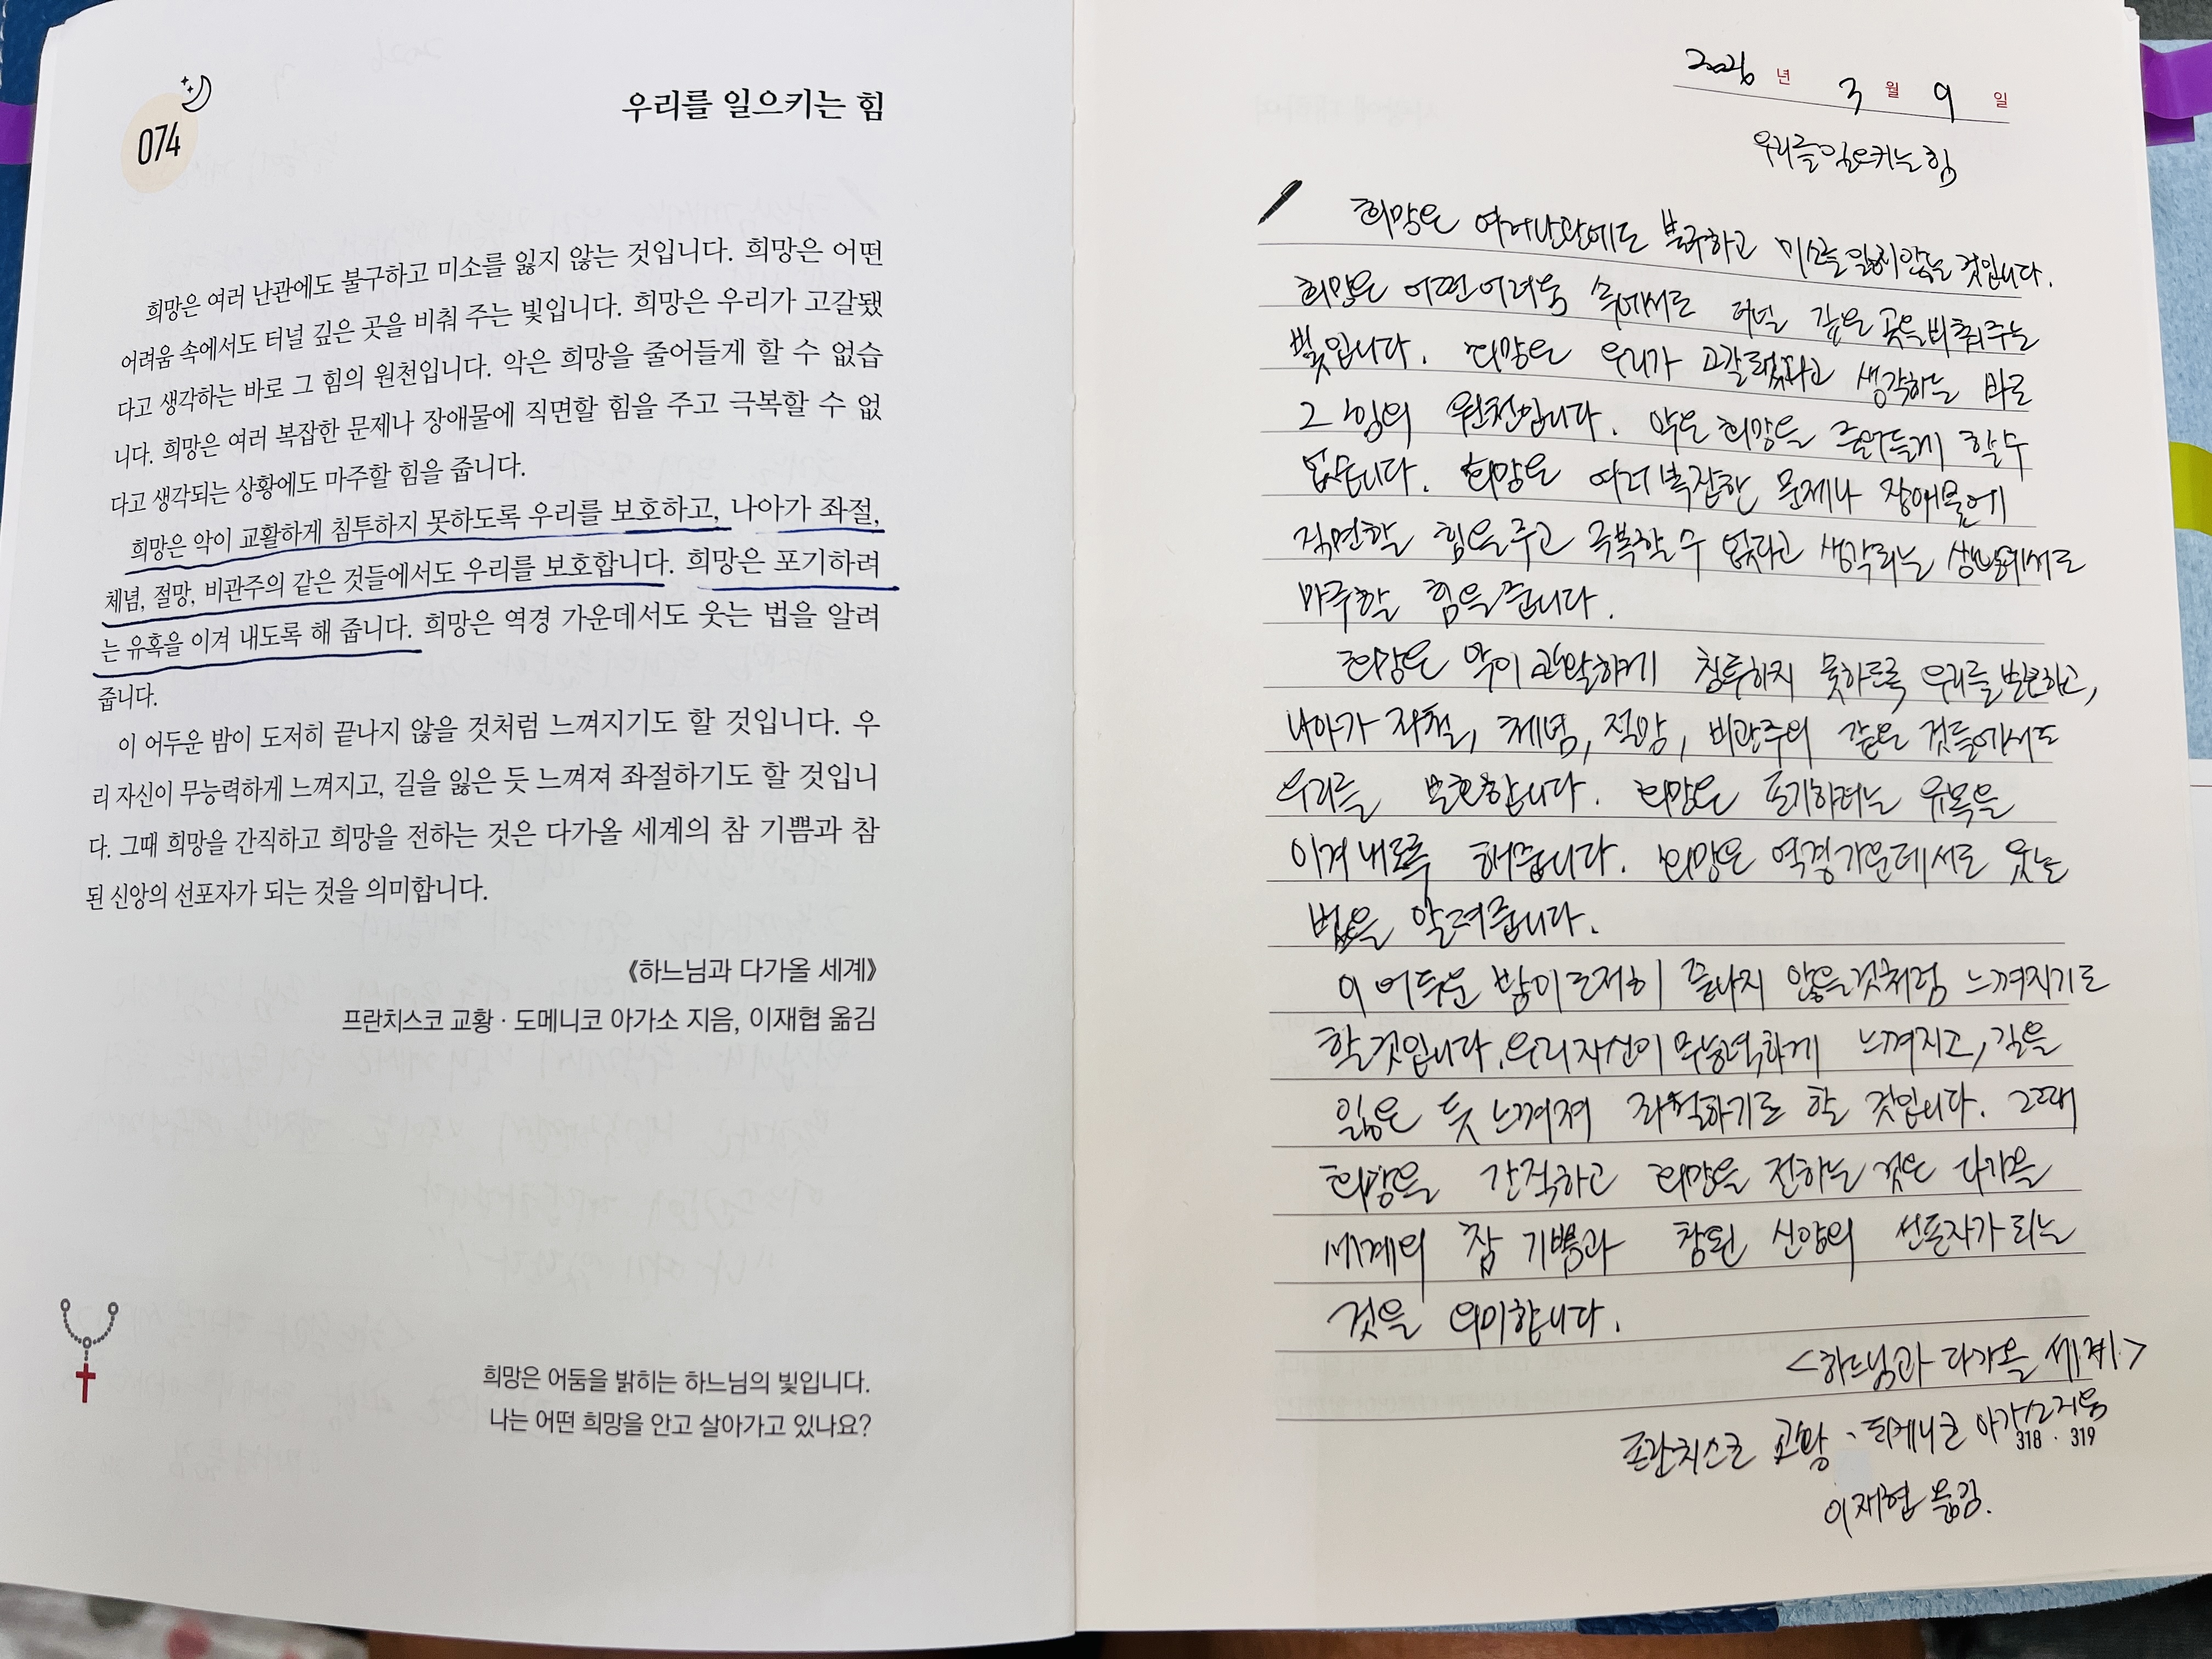 074
우리를 일으키는 힘
희망은 여러 난관에도 불구하고 미소를 잃지 않는 것입니다. 희망은 어떤
어려움 속에서도 터널 깊은 곳을 비춰 주는 빛입니다. 희망은 우리가 고갈됐
다고 생각하는 바로 그 힘의 원천입니다. 악은 희망을 줄어들게 할 수 없습
니다. 희망은 여러 복잡한 문제나 장애물에 직면할 힘을 주고 극복할 수 없
다고 생각되는 상황에도 마주할 힘을 줍니다.
희망은 악이 교활하게 침투하지 못하도록 우리를 보호하고, 나아가 좌절,
체념, 절망, 비관주의 같은 것들에서도 우리를 보호합니다. 희망은 포기하려
는 유혹을 이겨 내도록 해 줍니다. 희망은 역경 가운데서도 웃는 법을 알려
줍니다.
이 어두운 밤이 도저히 끝나지 않을 것처럼 느껴지기도 할 것입니다. 우
리 자신이 무능력하게 느껴지고, 길을 잃은 듯 느껴져 좌절하기도 할 것입니
다. 그때 희망을 간직하고 희망을 전하는 것은 다가올 세계의 참 기쁨과 참
된 신앙의 선포자가 되는 것을 의미합니다.
《하느님과 다가올 세계》
프란치스코 교황 · 도메니코 아가소 지음, 이재협 옮김
희망은 어둠을 밝히는 하느님의 빛입니다.
나는 어떤 희망을 안고 살아가고 있나요?
2026 년 3 월 9 일
우리를 일으키는 힘
희망은 여러난관에도 불구하고 미소를 잃지않는 것입니다.
희망은 어떤어려움 속에서도 터널 깊은 곳을비춰주는
빛입니다. 희망은 우리가 고갈됐다고 생각하는 바로
그 힘의 원천입니다. 악은 희망을 줄어들게 할수
없습니다. 희망은 여러복잡한 문제나 장애물에
직면할 힘을주고 극복할수 없다고 생각되는 상황에서도
마주할 힘을줍니다.
희망은 악이 교활하게 침투하지 못하도록 우리를보호하고,
나아가 좌절, 체념, 절망, 비관주의 같은 것들에서도
우리를 보호합니다. 희망은 포기하려는 유혹을
이겨내도록 해줍니다. 희망은 역경가운데서도 웃는
법을 알려줍니다.
이 어두운 밤이도저히 끝나지 않을것처럼 느껴지기도
할것입니다. 우리자신이 무능력하게 느껴지고, 길을
잃은 듯 느껴져 좌절하기도 할 것입니다. 그때
희망을 간직하고 희망을 전하는 것은 다가올
세계의 참 기쁨과 참된 신앙의 선포자가 되는
것을 의미합니다.
<하느님과 다가올 세계>
프란치스코 교황 · 도메니코 아가소지음
318 · 319
이재협 옮김.